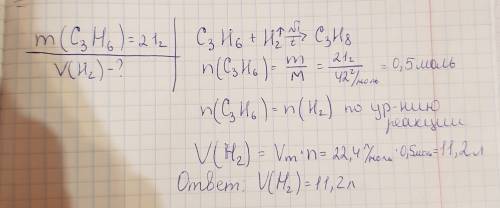 m(C₃H₆)=21г
V(H₂)-?
C₃H₆ + H₂↑ →(Ni, t) C₃H₈
n(C₃H₆) = m/M = 21г/42г/моль = 0,5 моль
n(C₃H₆) = n(H₂) по ур-нию
реакции
V(H₂) = Vm·n = 22,4л/моль·0,5моль=11,2л
Ответ: V(H₂)=11,2л